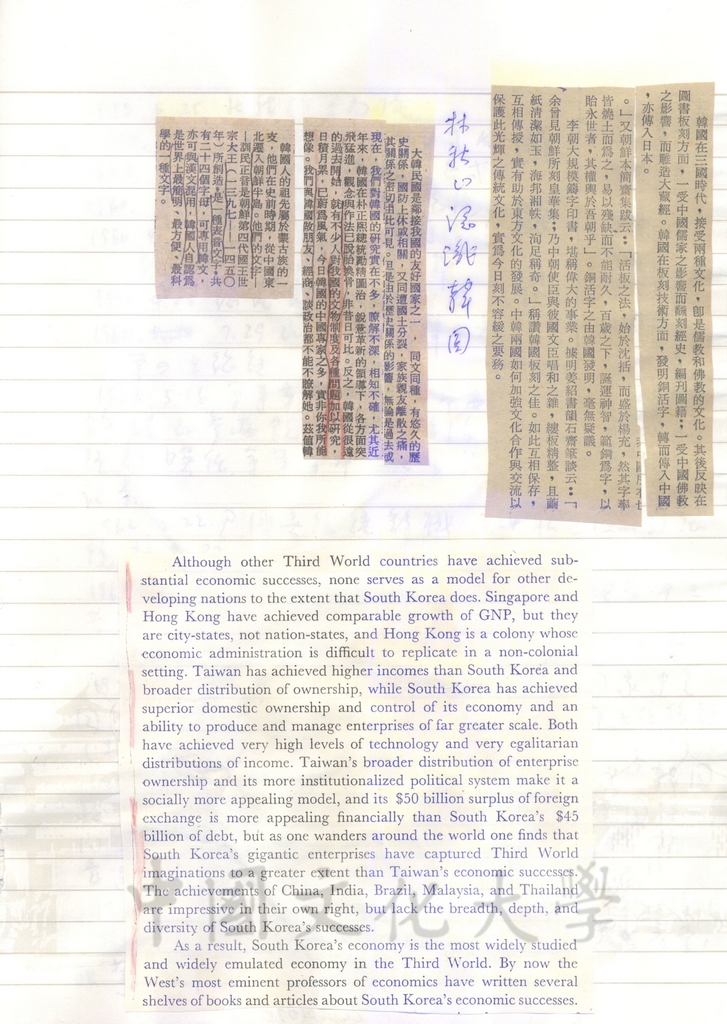 韓國在三國時代,接受兩種文化,卽是儒教和佛教的文化。其後反映在
圖書板刻方面,一受中國儒家之影響而翻刻經史,編刊圖籍;一受中國佛教
之影響,而雕造大藏經。韓國在板刻技術方面,發明銅活字,轉而傳入中國
,亦傳入日本。
。」又朝鮮本簡齋集跋云:「活板之法,始於沈括,而盛於楊充,然其字率
皆燒土而爲之,易以殘缺而不能耐久,百歲之下,誕運神智,範銅爲字,以
貽永世者,其權輿於吾朝乎」。銅活字之由韓國發明,毫無疑議。
李朝大規模鑄字印書,堪稱偉大的事業。據明姜紹書韻石齋筆談云:「
余曾見朝鮮所刻皇華集;乃中朝使臣與彼國文臣唱和之雜,縷板精整,且繭
紙清潔如玉,海邦湘軼,洵足稱奇。」稱讚韓國板刻之佳。如此互相保存,
互相傳授,實有助於東方文化的發展。中韓兩國如何加強文化合作與交流以
保護此光輝之傳統文化,實爲今日刻不容緩之要務。
林秋山漫談韓國
大韓民國是鄰接我國的友好國家之一,同文同種,有悠久的歷
史關係,國防上休戚相關,又同遭國土分裂,家族親友離散之痛,
其關係之密切由此可見。但是由於歷史關係的影響,無論是過去或
現在,我們對韓國的研究實在不多,瞭解不深,相知不確,尤其近
年來,韓國在朴正熙總統勵精圖治,銳意革新的領導下,各方面突
飛猛進,觀念與作法已脫胎換骨,非昔日可比。反之,韓國從很遠
的過去開始,就有不少人對我國的文物制度及各種問題加以研究,
日積月累,已蔚爲風氣,今日韓國的中國專家之多,實非你我所能
想像。我們與韓國做朋友、經商、談政治都不能不瞭解她。茲値韓
韓國人的祖先屬於蒙古族的一
支,他們在史前時期,從中國東
北遷入朝鮮半島。他們的文字—
—訓民正音是朝鮮第四代國王世
宗大王(一三九七——一四五〇
年)所創造,是一種表音文字,共
有二十四個字母,可專用韓文,
亦可與漢文混用,韓國人自認爲
是世界上最簡明、最方便、最科
學的一種文字。
Although other Third World countries have achieved sub-
stantial economic successes, none serves as a model for other de-
veloping nations to the extent that South Korea does. Singapore and
Hong Kong have achieved comparable growth of GNP, but they
are city-states, not nation-states, and Hong Kong is a colony whose
economic administration is difficult to replicate in a non-colonial
setting. Taiwan has achieved higher incomes than South Korea and
broader distribution of ownership, while South Korea has achieved
superior domestic ownership and control of its economy and an
ability to produce and manage enterprises of far greater scale. Both
have achieved very high levels of technology and very egalitarian
distributions of income. Taiwan's broader distribution of enterprise
ownership and its more institutionalized political system make it a
socially more appealing model, and its $50 billion surplus of foreign
exchange is more appealing financially than South Korea's $45
billion of debt, but as one wanders around the world one finds that
South Korea's gigantic enterprises have captured Third World
imaginations to a greater extent than Taiwan's economic successes.
The achievements of China, India, Brazil, Malaysia, and Thailand
are impressive in their own right, but lack the breadth, depth, and
diversity of South Korea's successes.
As a result, South Korea's economy is the most widely studied
and widely emulated economy in the Third World. By now the
West's most eminent professors of economics have written several
shelves of books and articles about South Korea's economic successes.
中國文化大學